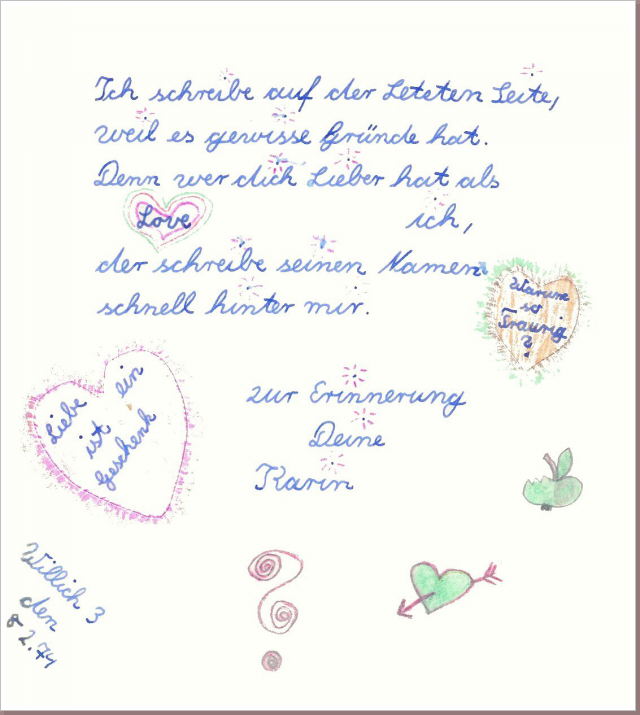 Ich schreibe auf der Letzten Seite,
weil es gewisse Gründe hat.
Denn wer dich Lieber hat als
Love
ich,
der schreibe seinen Namen
schnell hinter mir.
Warum
so
Traurig
?
Liebe
ist
ein
Geschenk
zur Erinnerung
Deine
Karin
Willich 3
den
8 2.74